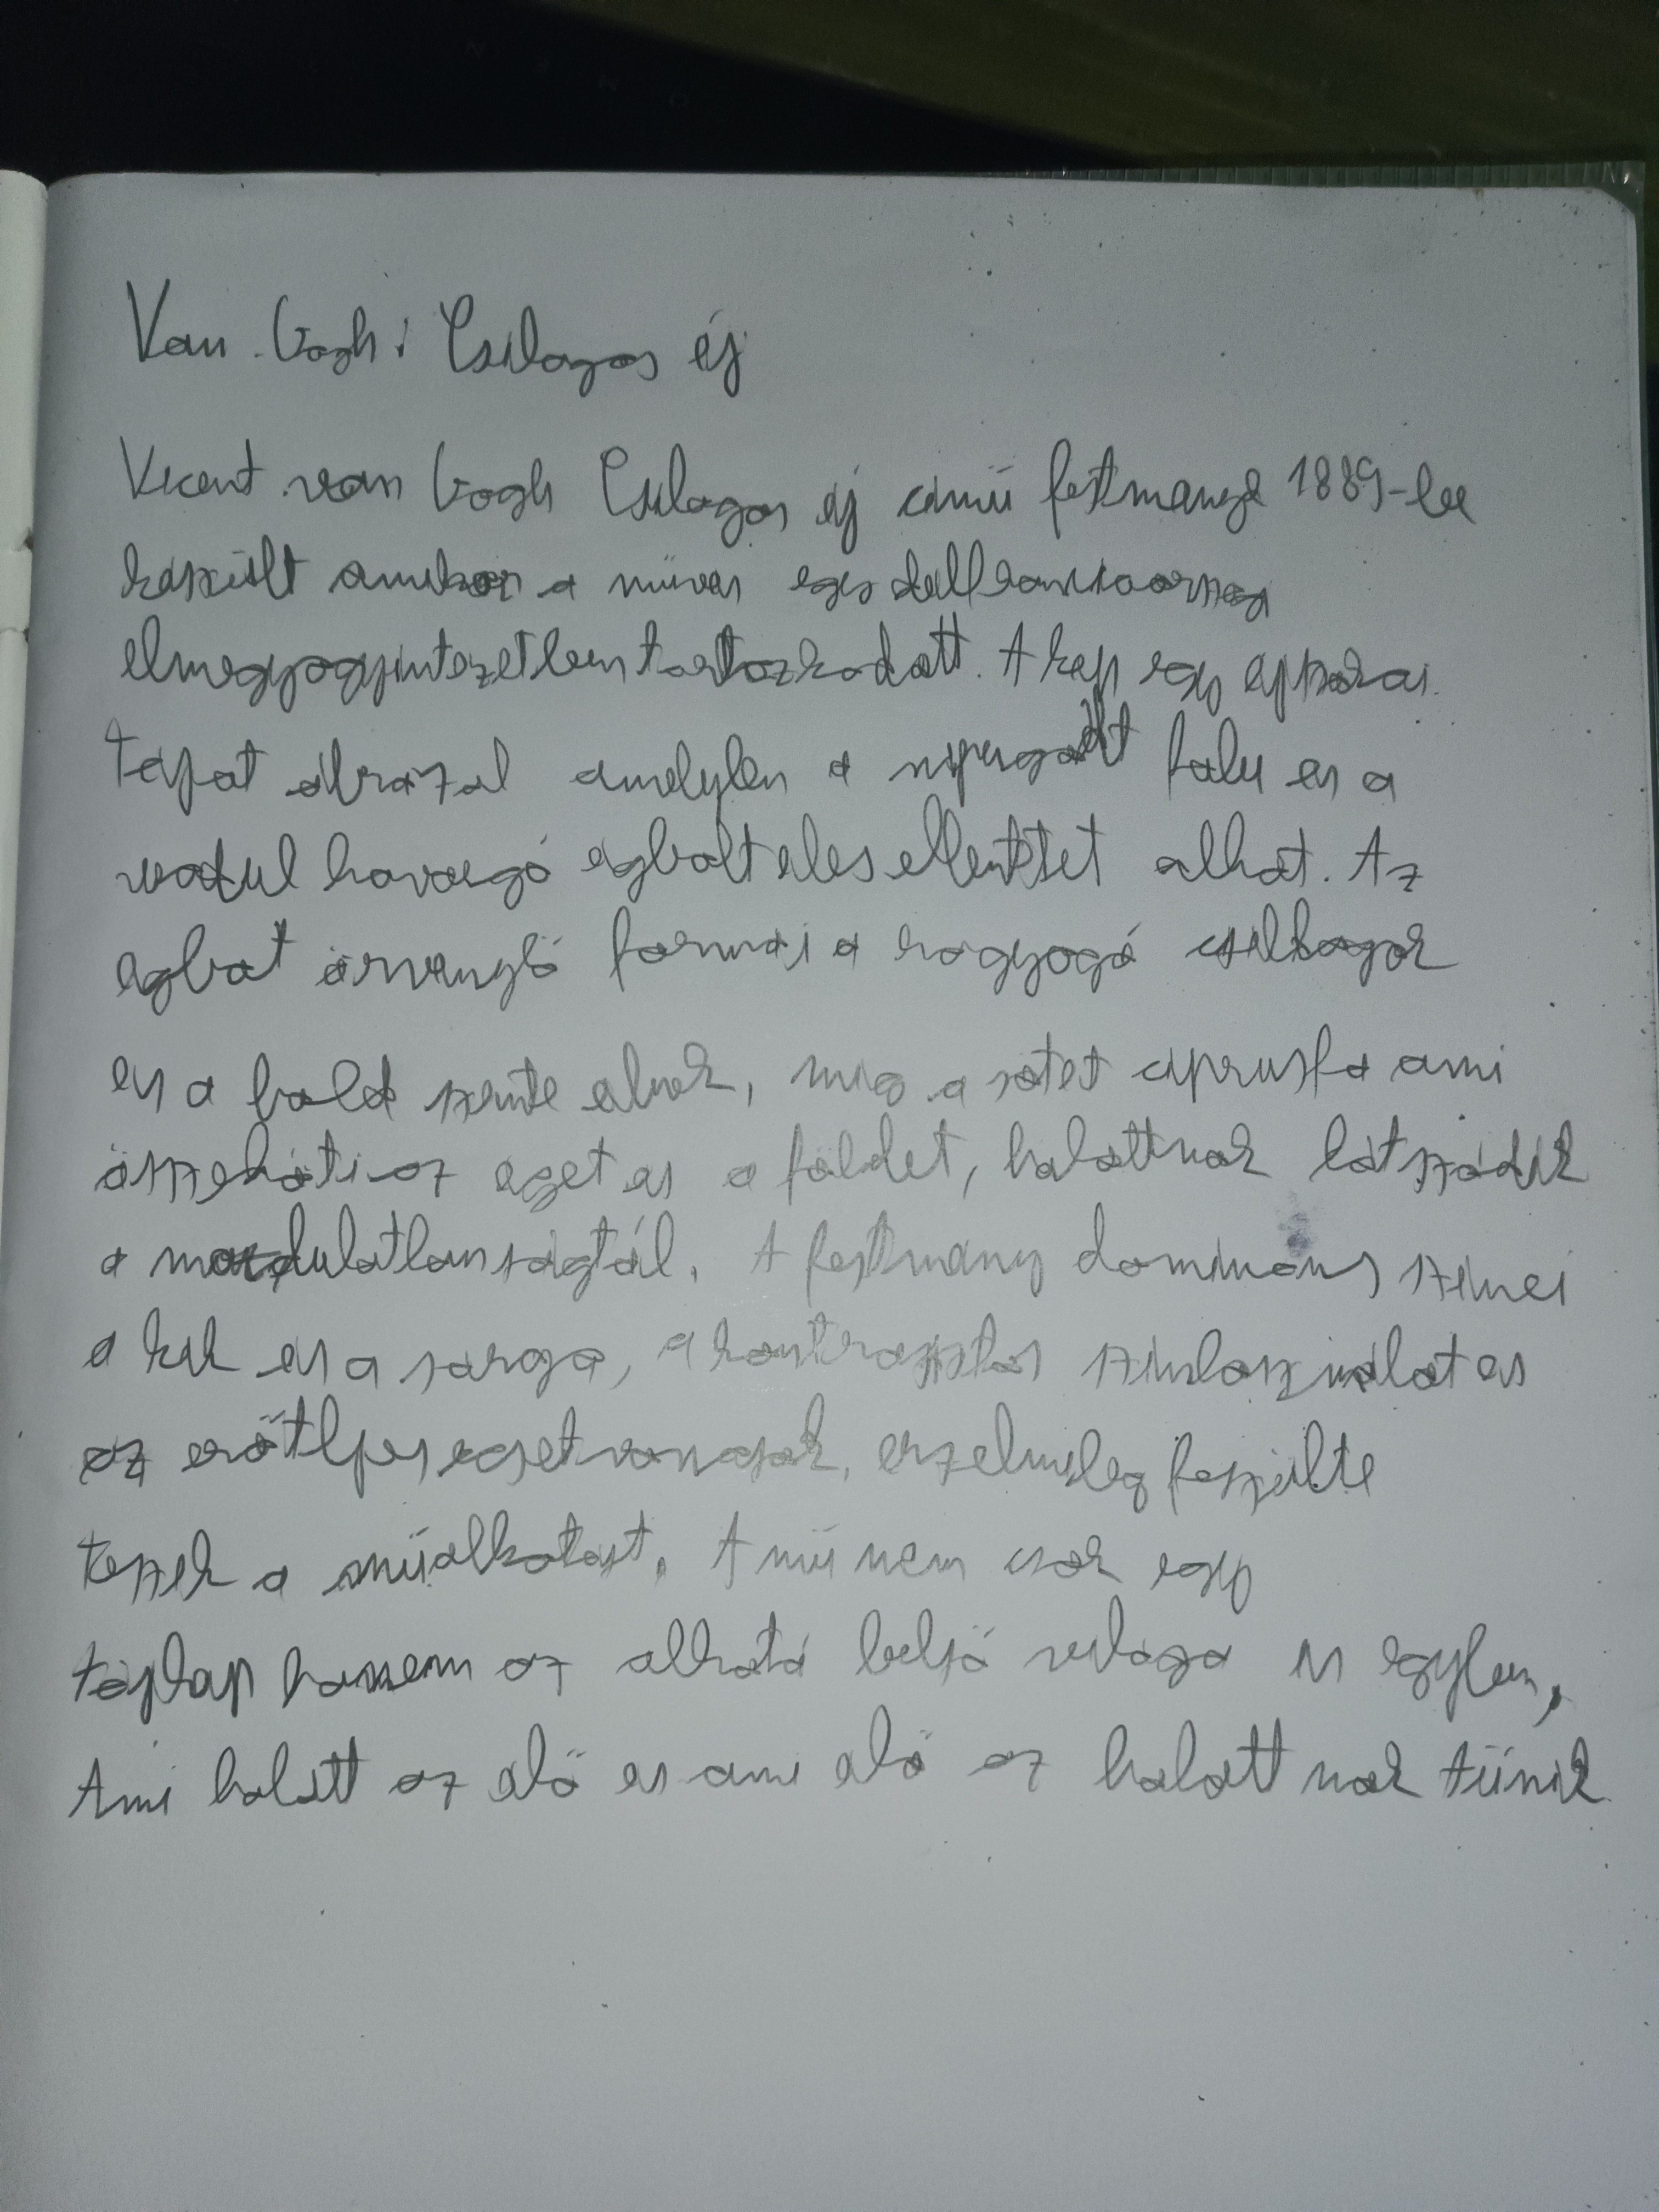 Van Gogh: Csilagos éj
Vicent van Gogh Csilagos éj cimü festmanye 1889-be
készült amikor a müves egy delfranciaorszagi
elmegyogyintezetben tartozkodott. A kep egy ejszakai
tajat abrázol amelyben a nyugodt falu es a
vadul kavargó egbolt eles ellentétet alkot. Az
egbot örvenylö formái a ragyogó csillagok
es a hold szinte elnek, mig a sötet ciprusfa ami
összeköti az eget es a földet, halottnak látszódik
a mozdulatlanságtól. A festmany domináns szinei
a kek es a sarga, a kontrasztos szinhasználat es
az erötlyes ecsetvonasok, erzelmileg feszülte
teszik a müalkotast. A mü nem csak egy
tajkap hanem az alkotó belsö vilaga is egyben,
Ami halott az elö es ami elö az halott nak tünik